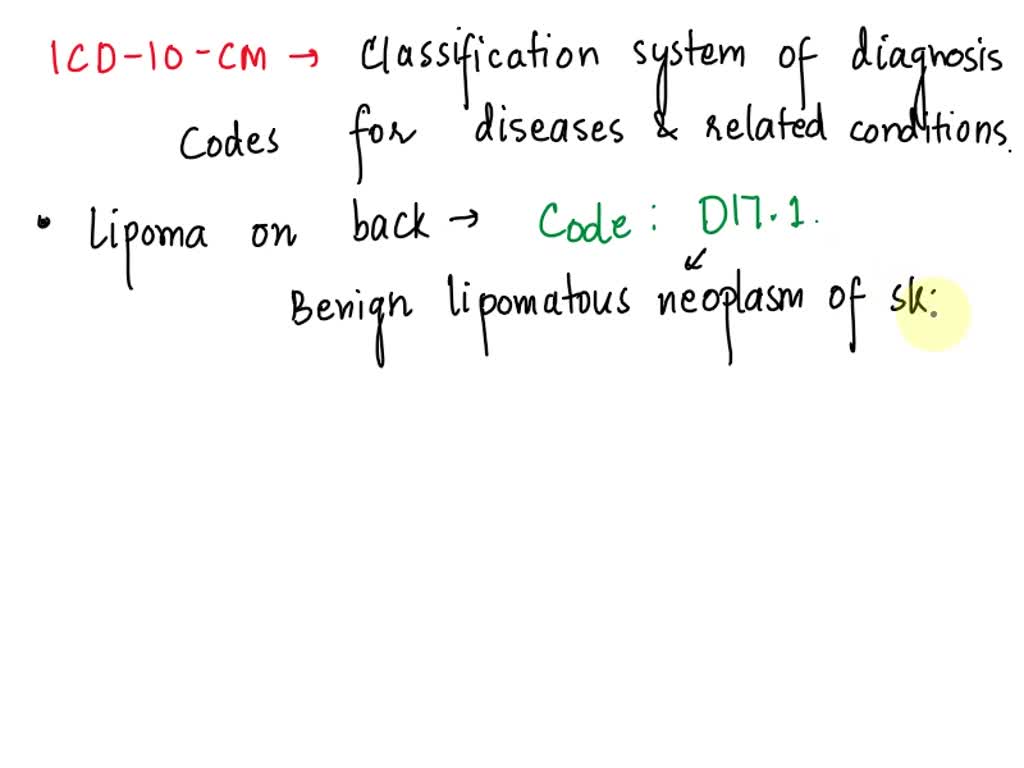 ICD-10-CM → Classification system of diagnosis
Codes for diseases & related conditions.
• Lipoma on back → Code: D17.1.
Benign lipomatous neoplasm of sk